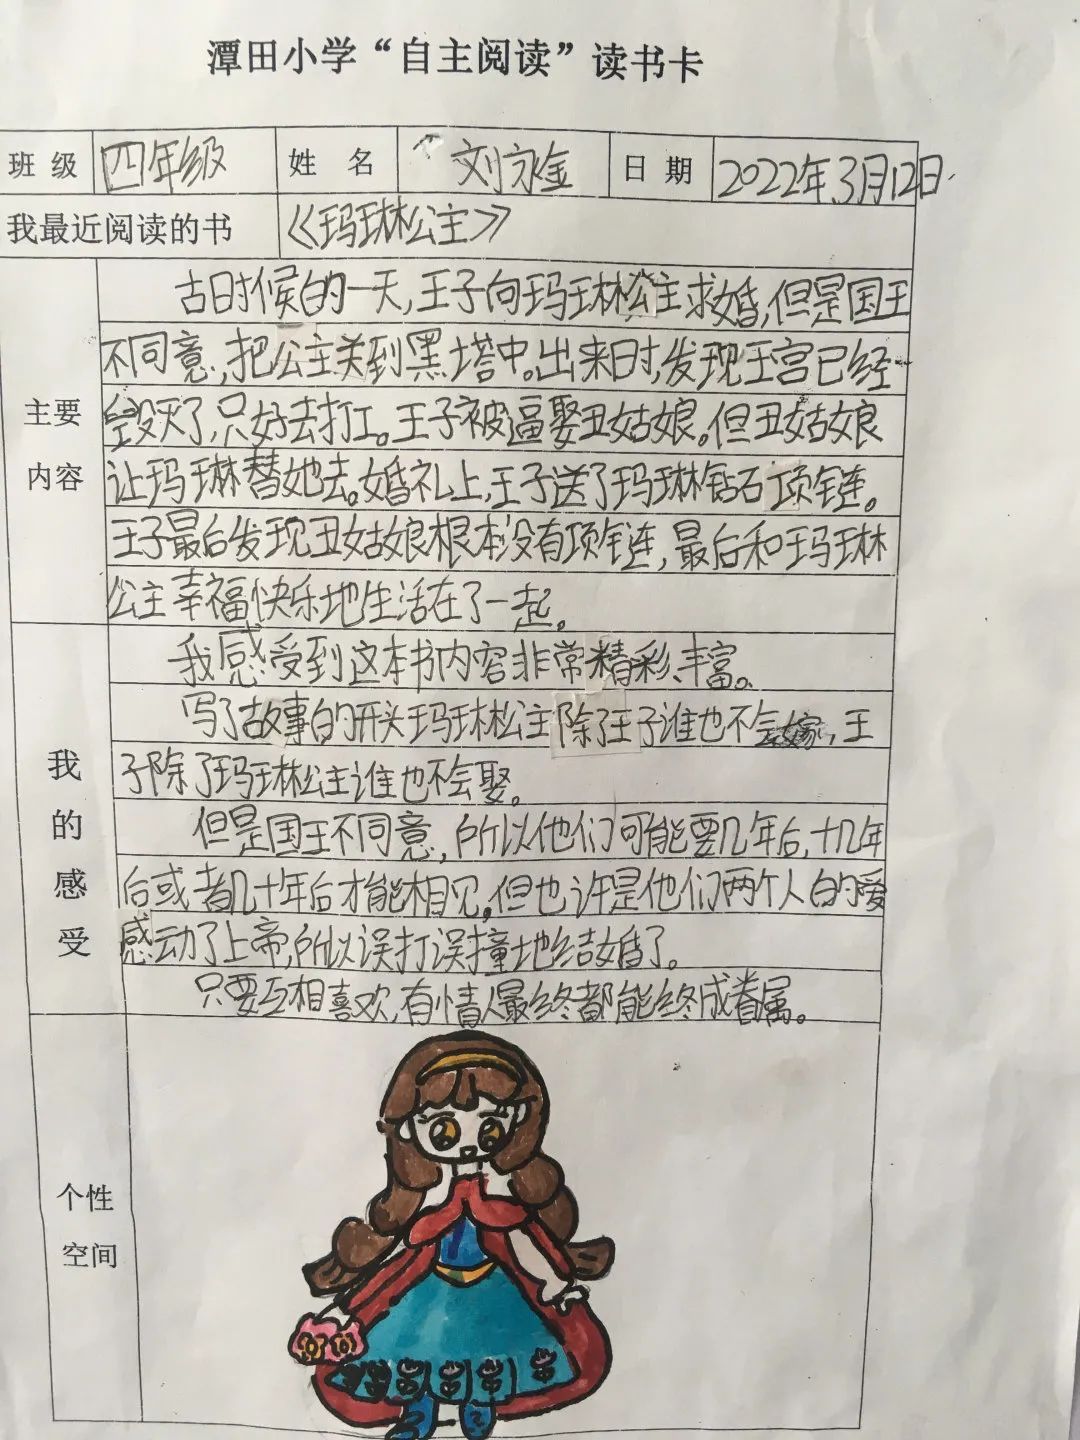 潭田小学“自主阅读”读书卡
班级 四年级 姓名 刘永金 日期 2022年3月12日.
我最近阅读的书 《玛琳公主》
主要内容
古时候的一天,王子向玛琳公主求婚,但是国王
不同意,把公主关到黑塔中。出来时,发现王宫已经
毁灭了,只好去打工。王子被逼娶丑姑娘。但丑姑娘
让玛琳替她去。婚礼上,王子送了玛琳钻石项链。
王子最后发现丑姑娘根本没有项链,最后和玛琳
公主幸福快乐地生活在了一起。
我的感受
我感受到这本书内容非常精彩、丰富。
写了故事的开头玛琳公主除了王子谁也不会嫁,王
子除了玛琳公主谁也不会娶。
但是国王不同意,所以他们可能要几年后,十几年
后或者几十年后才能相见,但也许是他们两个人的爱
感动了上帝,所以误打误撞地结婚了。
只要互相喜欢,有情人最终都能终成眷属。
个性
空间